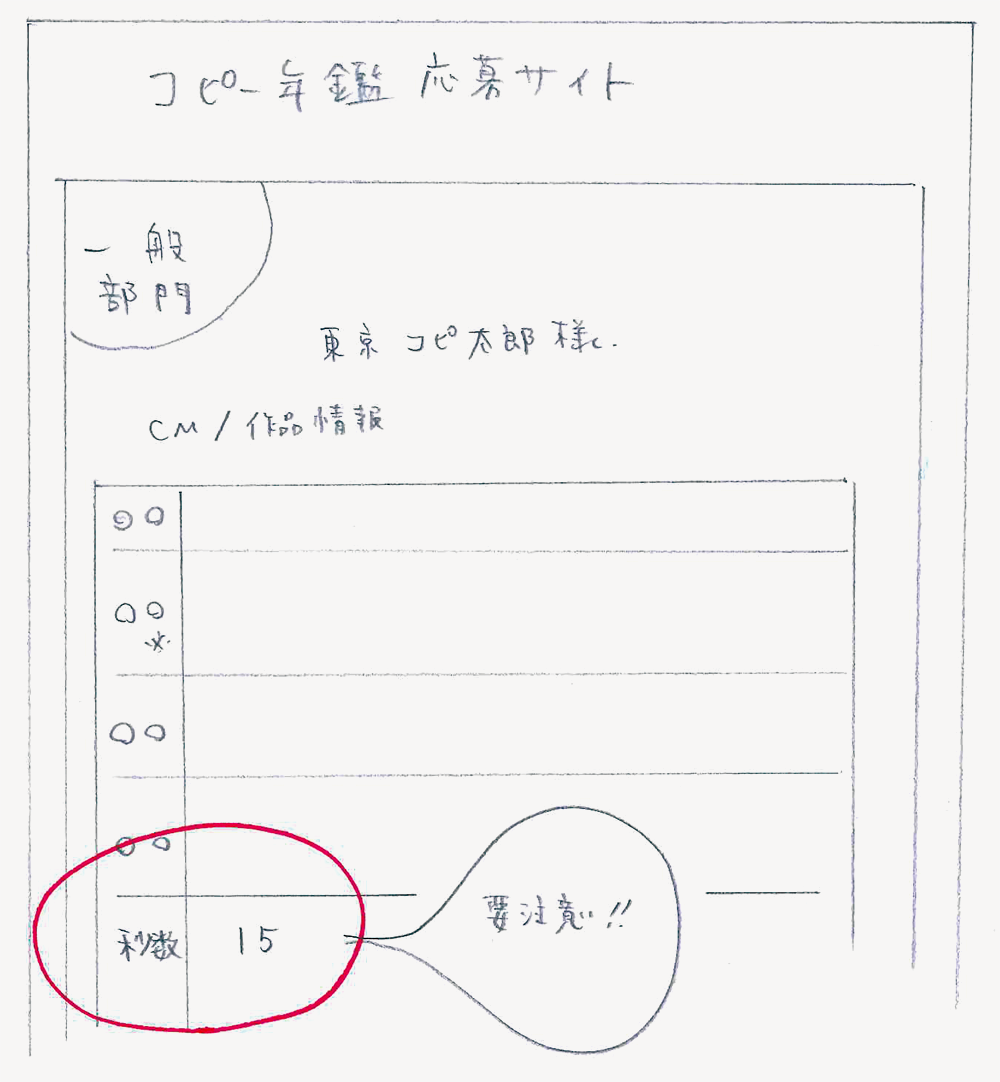 コピー年鑑 応募サイト
一般
部門
東京 コピ太郎様.
CM/作品情報
○○
○○
※
○○
○○
秒数 15
要注意!!